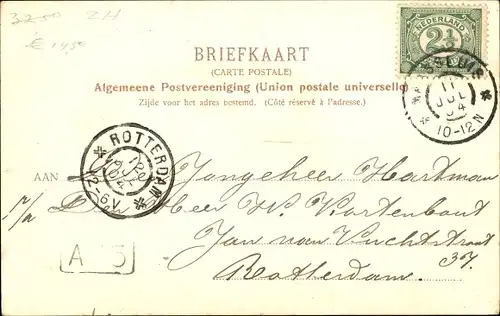 3250 ZH
€ 14,50
NEDERLAND
2½
BRIEFKAART
(CARTE POSTALE)
Algemeene Postvereeniging (Union postale universelle)
Zijde voor het adres bestemd. (Côté réservé à l'adresse.)
SLUIS
11
JUL
04
10-12N
ROTTERDAM
12
JUL
04
2-6V
AAN Jongeheer Hartman
p/a Den Heer W. Wortenbout
Jan van Vuchtstraat
Rotterdam. 37.
A 5